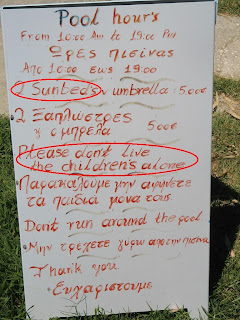 Pool hour's
From 10:00 Am to 19:00 Pm
Ώρες πισίνας
Απο 10:00 εως 19:00
2 Sunbed's umbrella: 5,00€
2 Ξαπλωστρες
η ομπρελα 5,00€
Please don't live
the children's alone
Παρακαλουμε μην αφηνετε
τα παιδια μονα τους
Dont run around the pool
Μην τρεχετε γυρω απο την πισινα
Thank you
Ευχαριστουμε